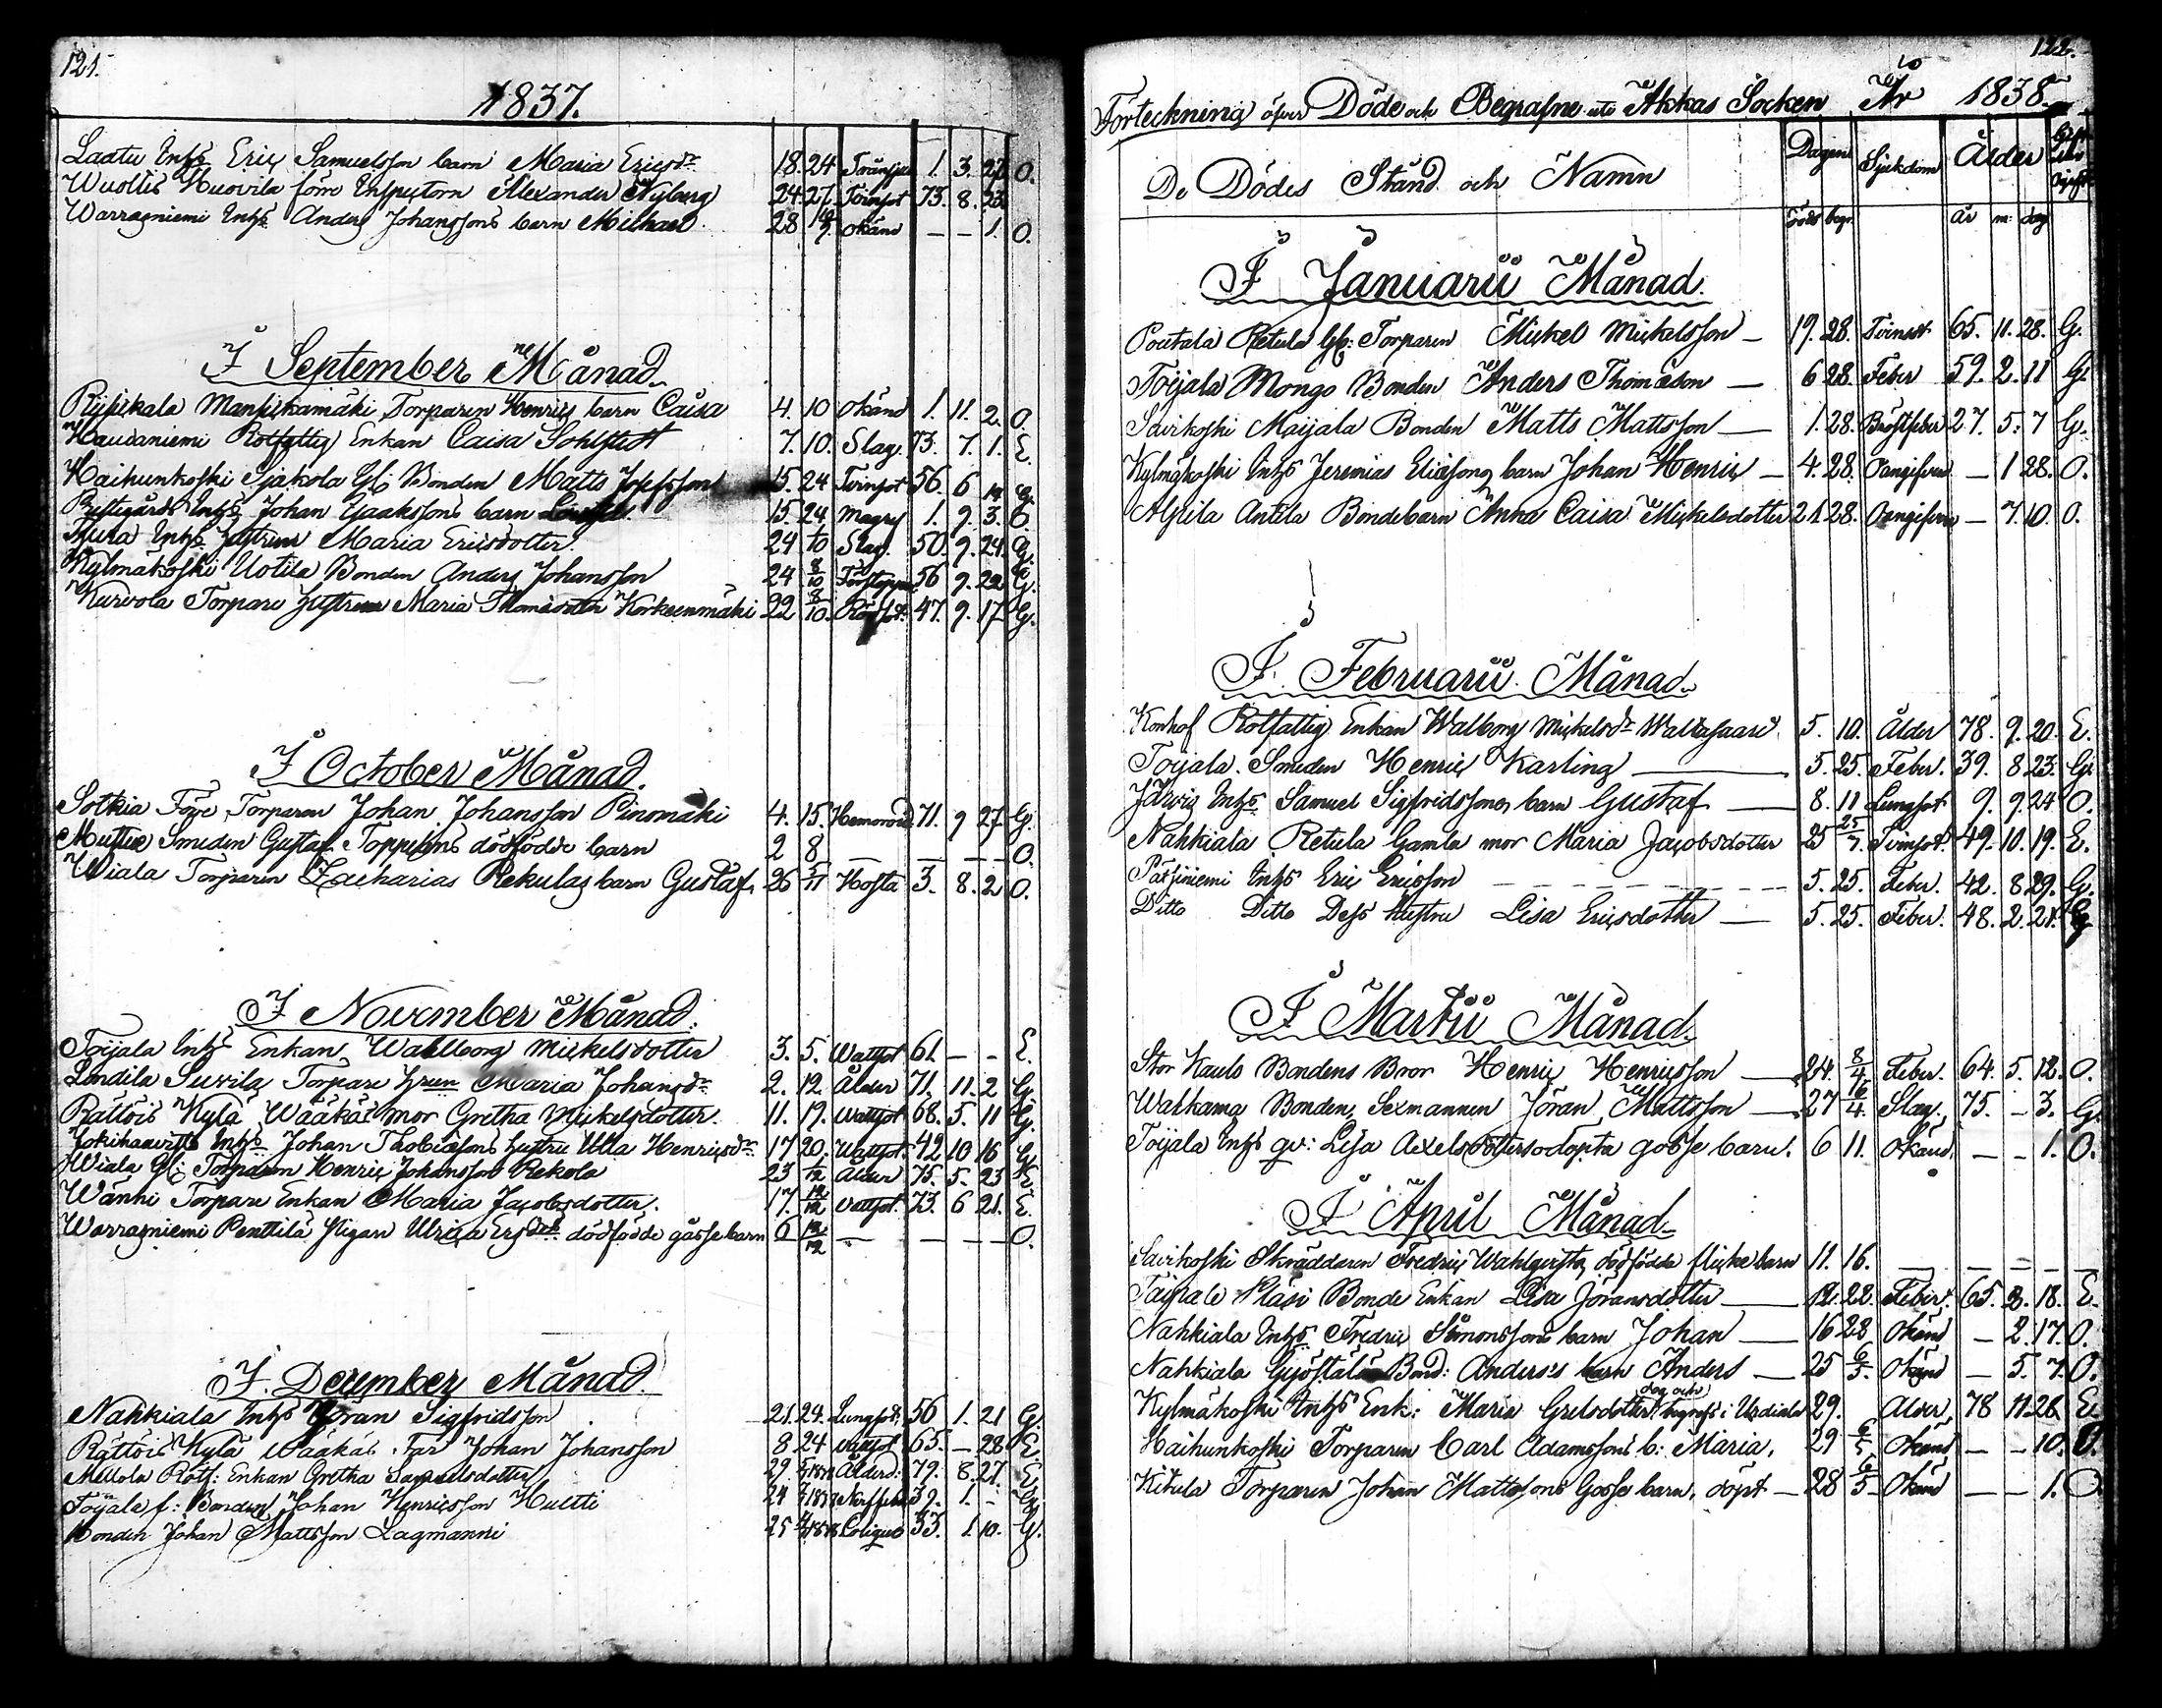 121.
1837.
Laatu Inhs Eric Samuelsson barn Maria Ericsdr 18. 24 1. 3. 27 O.
Wuoltis Huovila förre Inspectorn Alexander Nyberg 24. 27. Tvinsot 73. 8. 23.
Warragniemi Inhs Anders Johanssons barn Michael 28 okänd — — 1. O.
I September Månad.
Torparen Henrics barn Caisa 4. 10 okänd 1. 11. 2. O.
Haudaniemi Rotfattig Enkan Caisa Sohlstedt 7. 10. Slag. 73. 7. 1. E.
Haihunkoski Sjäkola Gl: Bonden Matts Josefsson 15. 24 Tvinsot 56. 6 14 G.
Inhs Johan Isaakssons barn 15. 24 1. 9. 3. O.
Inhs Hustrun Maria Ericsdotter. 24 1/10 Slag. 50. 9. 24. G.
Kylmäkoski Uotila Bonden Anders Johansson 24 8/10 56 9. 22 G.
Kurvola Torpare hustrun Maria Thomasdotter Korkeenmäki 22 8/10. Rödsot. 47. 9. 17 G.
I October Månad.
Sotkia Torparen Johan Johansson Pinomäki 4. 15. 71. 9 27. G.
Smeden Gustaf Toppelins dödfödde barn 2 8 — — — — O.
Wiala Torparen Zacharias Rekolas barn Gustaf. 26 5/11 Hosta 3. 8. 2 O.
I November Månad.
Toijala Inhs Enkan Wahlborg Mickelsdotter 3. 5. Wattsot 61. — — E.
Londila Suvila Torpare hrun Maria Johansdr 2. 12. Ålder 71. 11. 2 G.
Rättöis Kylä Wääkäs mor Gretha Mickelsdotter. 11. 19. Wattsot 68. 5. 11 G.
Inhs Johan Thobiassons hustru Ulla Henricsdr 17 20. Wattsot. 42 10 16 G.
Wiala Gl: Torparen Henric Johansson Rekola 23 1/12 Ålder 75. 5. 23 E.
Wänni Torpare Enkan Maria Jacobsdotter. 17. 12/12 Vattsot. 73. 6 21. E.
Warragniemi Penttilä Pigan Ulrica dödfödde gåsse barn 6 12/12 — — — — O.
I December Månad.
Nahkiala Inhs Göran Sigfridsson 21. 24. Lungsot. 56 1. 21 G.
Rättöis Kylä Wääkäs Far Johan Johansson 8 24 Vattsot 65. — 28 E.
Mellola Rotf: Enkan Gretha Samuelsdotter 29 Ålderd: 79. 8. 27. E.
Toijala f: Bonden Johan Henricsson Hutti 24 39. 1. -
Bonden Johan Mattsson Lagmanni 25 Colique 53. 1. 10. G.
122.
Förteckning öfver Döde och Begrafne uti Akkas Socken År 1838.
De Dödes Stånd och Namn Dagen Sjukdom Ålder
Död begr. år m: dag
I Januarii Månad.
Poutala Retula Gl: Torparen Mickel Mickelsson — 19. 28. Tvinsot 65. 11. 28. G.
Toijala Mongo Bonden Anders Thomasson — 6 28. Feber 59. 2. 11 G.
Savikoski Maijala Bonden Matts Mattsson — 1. 28. Bröstfeber 27. 5. 7 G.
Kylmäkoski Inhs Jeremias Eliassons barn Johan Henric — 4. 28. Oangifven — 1 28. O.
Antila Bondebarn Anna Caisa Mickelsdotter 21. 28. Oangifven — 7. 10. O.
I Februarii Månad.
Konhof Rotfattig Enkan Walborg Mickelsdr Waltasaari 5. 10. Ålder 78. 9. 20. E.
Toijala. Smeden Henric Karling — 5. 25. Feber. 39. 8 23. G.
Järviö Inhs Samuel Sigfridssons barn Gustaf — 8. 11 Lungsot 9. 9. 24 O.
Nahkiala Retula Gamla mor Maria Jacobsdotter 25 25/7. Tvinsot. 49. 10. 19. E.
Inhs Eric Ericsson — 5. 25. Feber. 42. 8 29. G.
Ditto Ditto Dess hustru Lisa Ericsdotter — 5. 25. Feber. 48. 2. 21. G
I Martii Månad.
Stor Kauls Bondens Bror Henric Henricsson — 24. 8/4 Feber. 64. 5. 12. O.
Wahkama Bonden, Sexmannen Jöran Mattsson — 27 16/4. Slag. 75. — 3. G.
Toijala Inhs qv: Lisa Axelsdotters odöpta gosse barn. 6 11. Okänd. — — 1. O.
I April Månad.
Savikoski Skräddaren Fredric Wahlqvists dödfödda flicke barn 11. 16. — — — —
Bonde Enkan Lisa Göransdotter — 12. 22. Feber. 65. 2. 18. E.
Nahkiala Inhs Fredric Simonssons barn Johan — 16 28 Okänd — 2. 17. O.
Nahkiala Bond: Anders's barn Anders — 25 6/5. Okänd — 5. 7. O.
Kylmäkoski Inhs Enk: Maria Grelsdotter dog och begrafs i Urdiala 29. Ålder 78 11. 26 E
Haihunkoski Torparen Carl Adamssons b: Maria. 29 6/5 Okänd — — 10. O.
Kitula Torparen Johan Mattssons Gosse barn, döpt — 28 6/5 Okänd — — 1. O.